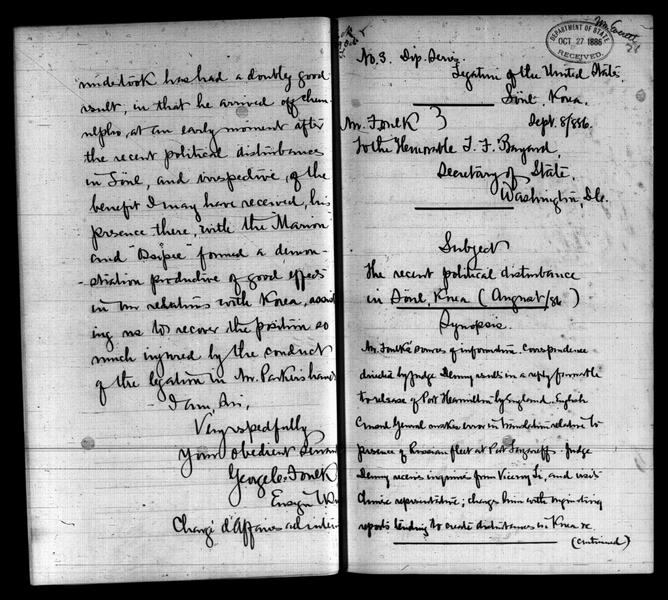 undertook has had a doubly good
result, in that he arrived off Chem-
ulpho, at an early moment after
the recent political disturbance
in Söul, and irrespective, of the
benefit I may have received, his
presence there, with the "Marion"
and "Ossipee" formed a demon-
-stration productive of good effects
in our relations with Korea, assist
ing us to recover the position so
much injured by the conduct
of the legation in Mr. Parker's hands.
I am, Sir,
Very respectfully
Your obedient servant
George C. Foulk
Ensign U.S.
Chargé d'Affaires ad interim
DEPARTMENT OF STATE
OCT 27 1886
RECEIVED
No. 3. Dip. Series
Legation of the United States.
Söul, Korea.
Sept. 8/886.
Mr. Foulk }
To the Honorable T. F. Bayard,
Secretary of State.
Washington, D.C.
Subject
The recent political disturbance
in Söul, Korea (August/86)
Synopsis.
Mr. Foulk's sources of information. Correspondence
directed by Judge Denny results in a reply favorable
to release of Port Hamilton by England. English
Consul General makes error in translation relative to
presence of Russian fleet at Port Lazareff. Judge
Denny receives inquiries from Viceroy Li, and visits
Chinese representative; charges him with originating
reports tending to create disturbances in Korea &c.
(continued)